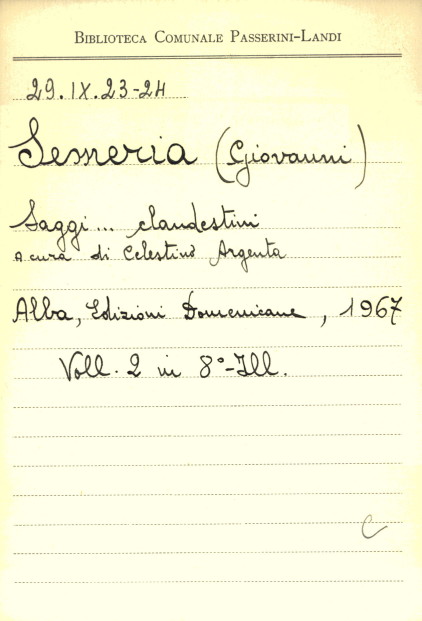 BIBLIOTECA COMUNALE PASSERINI-LANDI
29.IX.23-24
Semeria (Giovanni)
Saggi... clandestini
a cura di Celestino Argenta
Alba, Edizioni Domenicane, 1967
Voll. 2 in 8°-Ill.
C